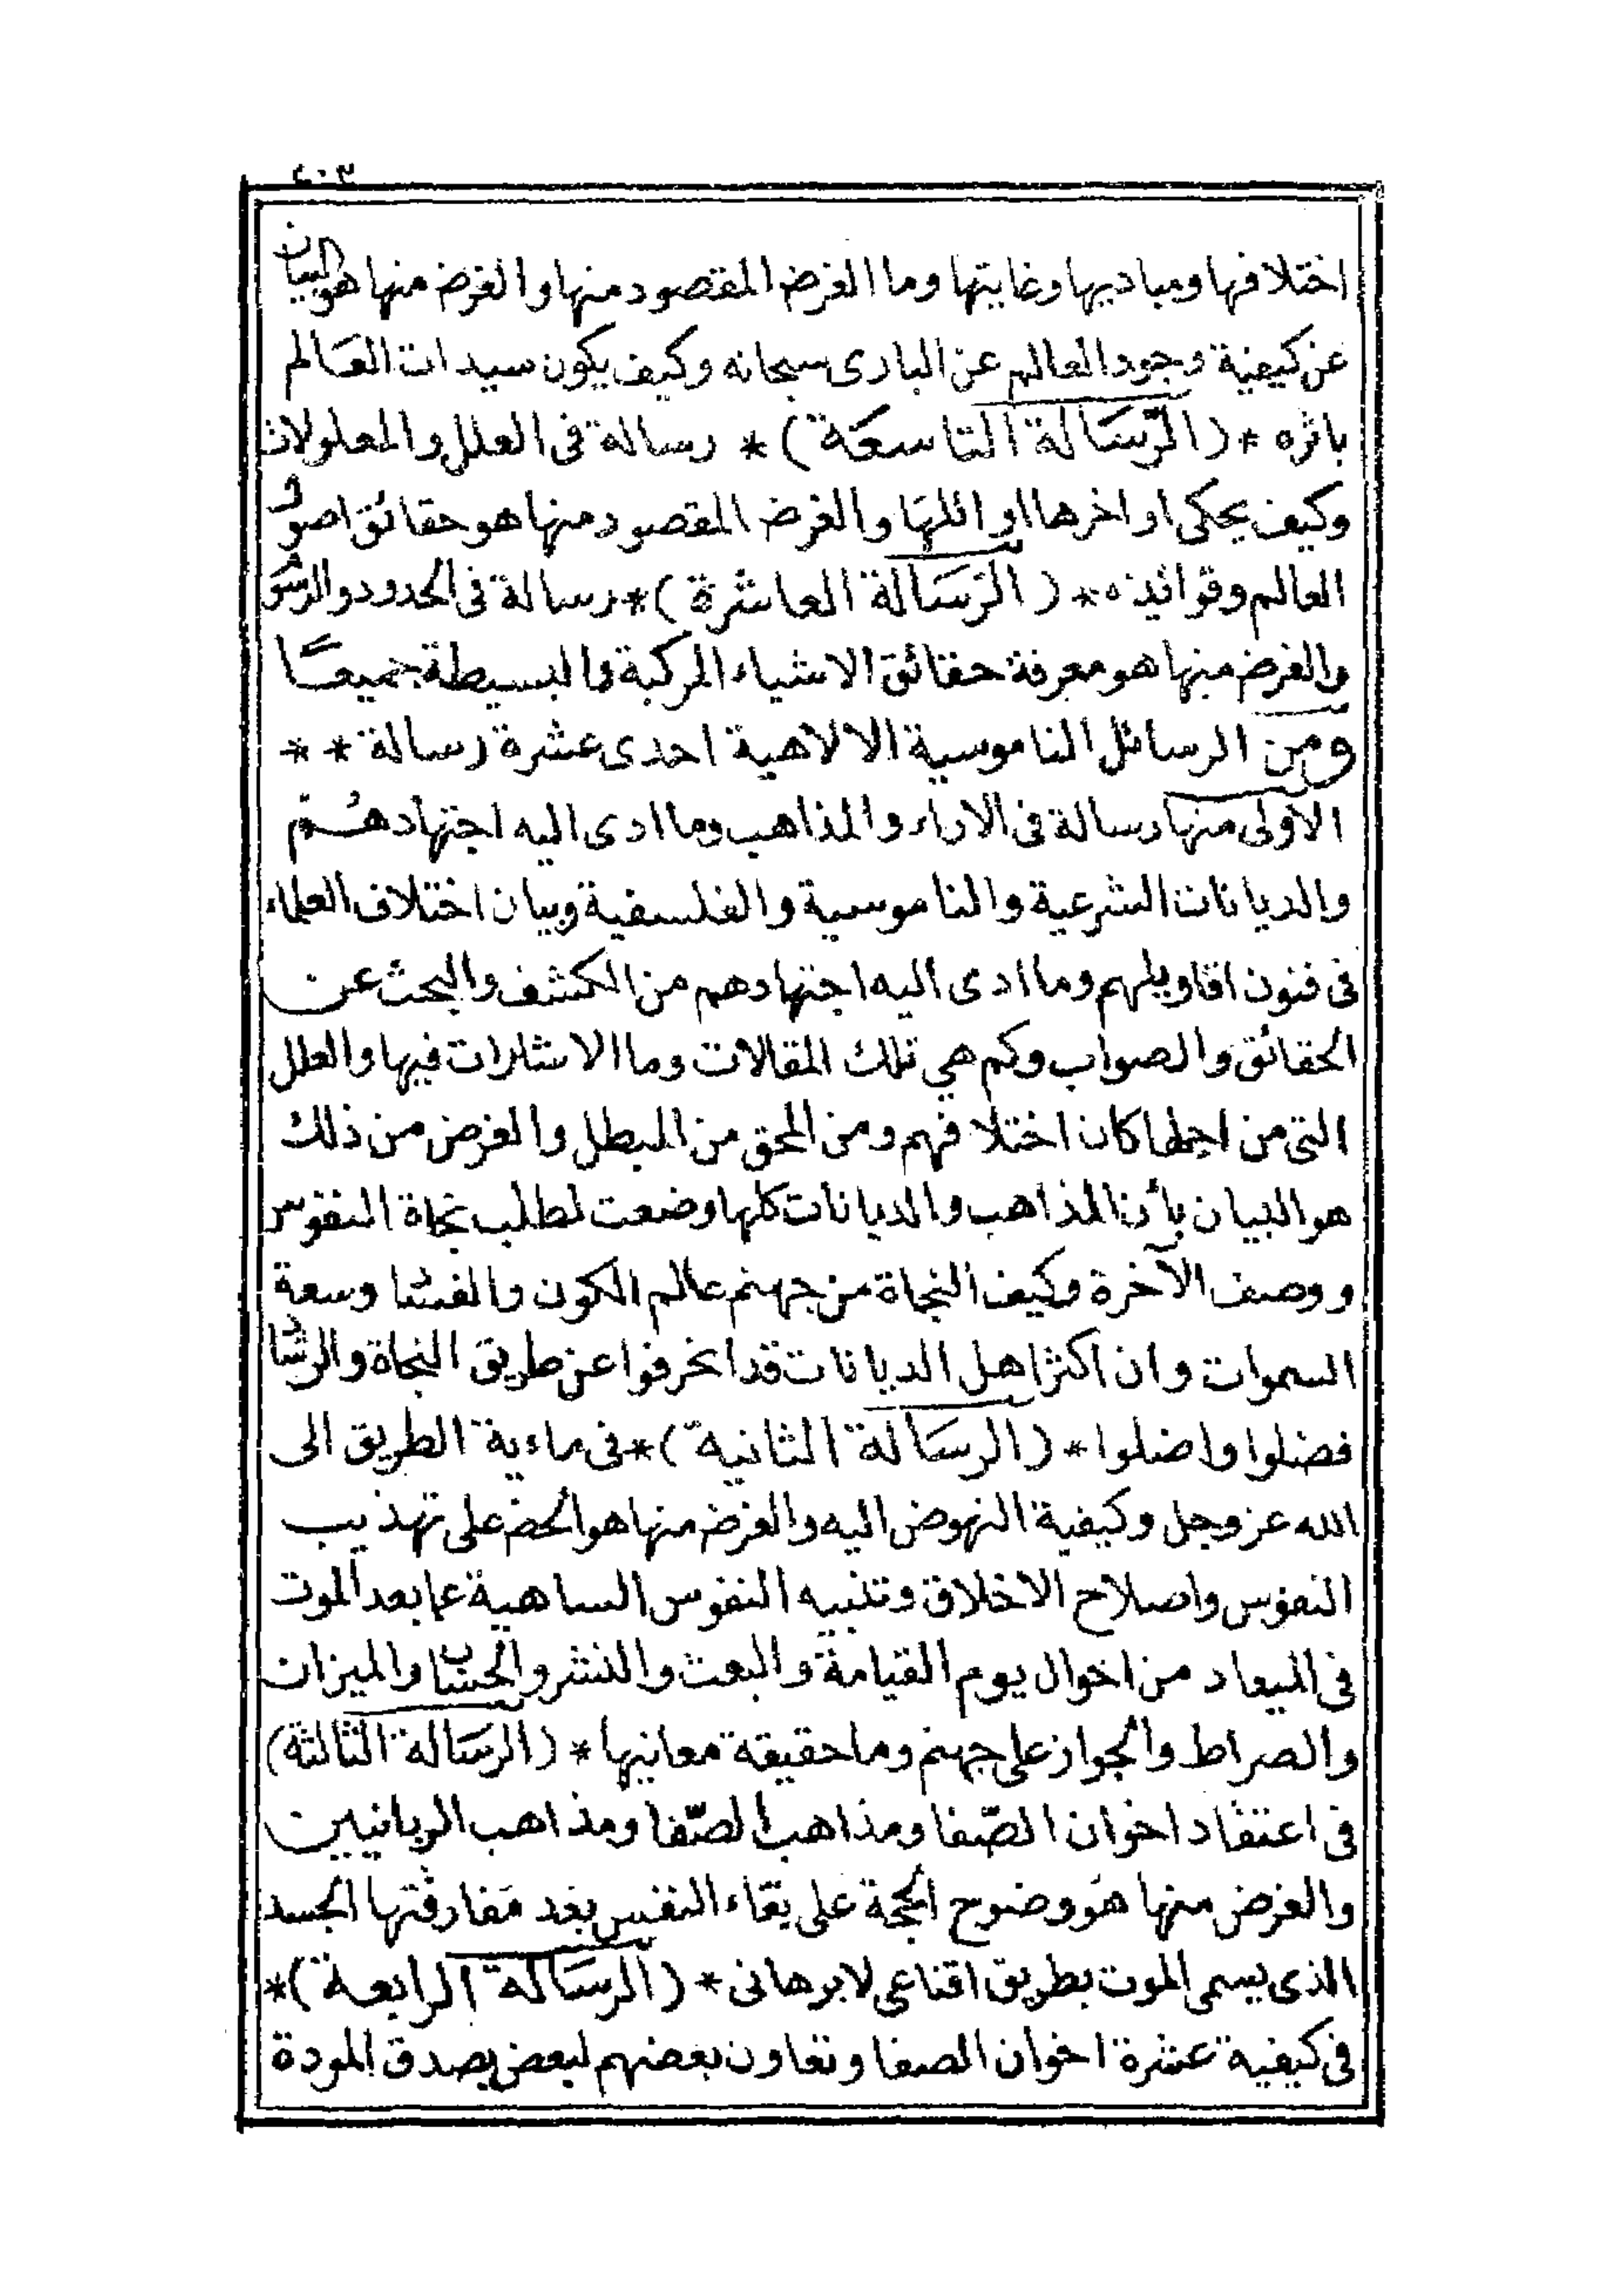 ٤٠٣
اختلافها ومباديها وغايتها وما الغرض المقصود منها والغرض منها هو البيان
عن كيفية وجود العالم عن البارى سبحانه وكيف يكون سيدات العالم
باثره * (الرّسَالة التاسعَة) * رسالة فى العلل والمعلولات
وكيف يحكى اواخرها اوائلها والغرض المقصود منها هو حقائق اصول
العالم وقوانينه * (الرَسَالة العاشرة) * رسالة فى الحدود والرسوم
والغرض منها هو معرفة حقائق الاشياء المركبة والبسيطة جميعًا
ومن الرسائل الناموسية الالاهية احدى عشرة رسالة * *
الأولى منها رسالة فى الاراء والمذاهب وما ادى اليه اجتهادهُم
والديانات الشرعية والناموسية والفلسفية وبيان اختلاف العلماء
فى فنون اقاويلهم وما ادى اليه اجتهادهم من الكشف والبحث عن
الحقائق والصواب وكم هي تلك المقالات وما الاشارات فيها والعلل
التى من اجلها كان اختلافهم ومن المحق من المبطل والغرض من ذلك
هو البيان بأن المذاهب والديانات كلها وضعت لطلب نجاة النفوس
ووصف الآخرة وكيف النجاة من جهنم عالم الكون والفساد وسعة
السموات وان اكثر اهل الديانات قد انحرفوا عن طريق النجاة والرشاد
فضلوا واضلوا * (الرسَالة الثانية) * فى ماءية الطريق الى
الله عز وجل وكيفية النهوض اليه والغرض منها هو الحض على تهذيب
النفوس واصلاح الاخلاق وتنبيه النفوس الساهية عما بعد الموت
فى الميعاد من احوال يوم القيامة والبعث والنشر والحساب والميزان
والصراط والجواز على جهنم وما حقيقة معانيها * (الرسَالة الثالثة)
فى اعتقاد اخوان الصّفا ومذاهب الصّفا ومذاهب الربانيين
والغرض منها هو وضوح الحجة على بقاء النفس بعد مفارقتها الجسد
الذى يسمى الموت بطريق اقناعى لا برهانى * (الرسَالة الرابعة) *
فى كيفية عشرة اخوان الصفا وتعاون بعضهم لبعض بصدق المودة